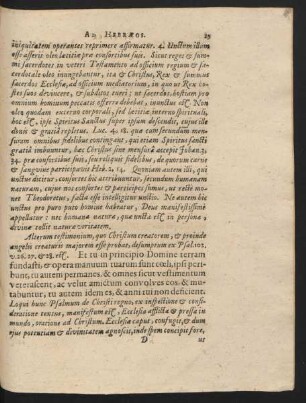 AD HEBRÆOS. 25
iniquitatem operantes reprimere affirmatur. 4. Unctum illum
esse asserit oleo lætitiæ præ consortibus suis. Sicut reges & sum-
mi sacerdotes in veteri Testamento ad officium regium & sa-
cerdotale oleo inungebantur, ita & Christus, Rex & summus
sacerdos Ecclesiæ, ad officium mediatorium, in quo ut Rex ho-
stes suos devinceret, & subditos tueri; ut sacerdos, hostiam pro
omnium hominum peccatis offerre debebat, inunctus est. Non
oleo quodam externo corporali, sed lætitiæ, interno spirituali,
hoc est, ipse Spiritus Sanctus super ipsum descendit, eique ille
donis & gratiâ repletus. Luc. 4. 18. quam cum filiis hominum
omnium fidelibus contingant, qui etiam Spiritus sancti
gratiâ imbuuntur, hac Christus sine mensurâ accepit Johan. 3.
34. præ consortibus suis, seu reliquis fidelibus, de quorum carne
& sanguine participavit Heb. 2, 14. Quoniam autem illi, qui
unctus dicitur, consortes hic attribuuntur, secundum humanam
naturam, cujus nos consortes & participes sumus, ut rectè mo-
net Theodoretus, facta esse intelligitur unctio. Ne autem hic
unctus pro puro puto homine habeatur, Deus manifestissimè
appellatur: nec humana natura, quæ uncta est in personâ,
divinæ rectæ naturæ veritatem.
Alterum testimonium, quo Christum creatorem, & proinde
angelis creaturis majorem esse probat, desumptum ex Psal. 102.
v. 26. 27, & 28. est. Et tu in principio Domine terram
fundasti, & opera manuum tuarum sunt cœli, ipsi peri-
bunt, tu autem permanes, & omnes sicut vestimentum
veterascent, ac velut amictum convolves eos, & mu-
tabuntur, tu autem idem es, & anni tui non deficient.
Loqui hunc Psalmum de Christi regno, ex inspectione & consi-
deratione textus, manifestum est, Ecclesia afflicta & pressa in
mundo, oratione ad Christum, Ecclesiæ caput, confugit, & dum
ejus potentiam & divinitatem agnoscit, inde spem concipit fore,
D ut